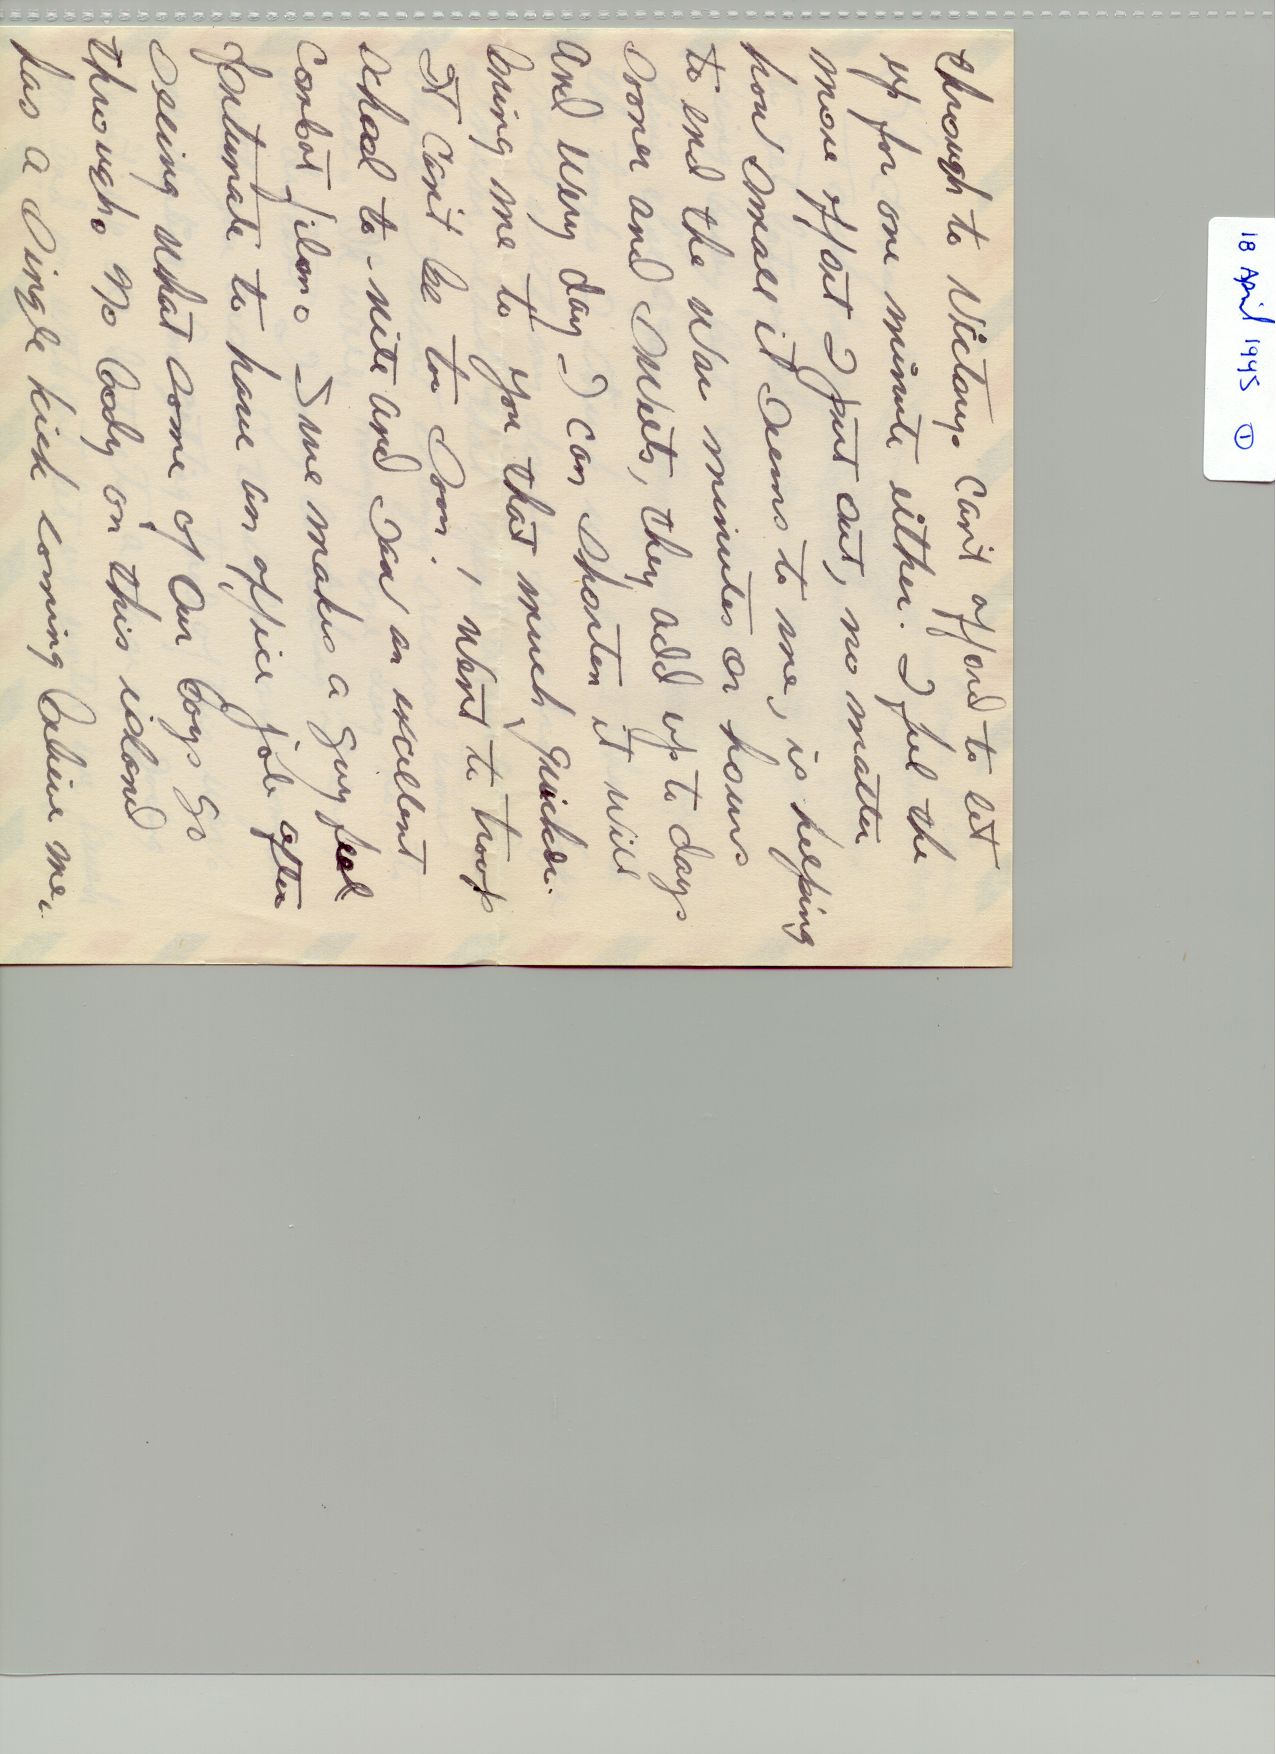 18 April 1945 ①
through to Victory. Can't afford to let
up for one minute either. I feel the
more effort I put out, no matter
how small it seems to me, is helping
to end the war minutes or hours
sooner and sweets, they add up to days
and every day I can shorten it will
bring me to you that much quicker.
It can't be too soon. , Went to troop
school to-nite and saw an excellent
combat film. Sure makes a guy feel
fortunate to have an office job after
seeing what some of our boys go
through. No body on this island
has a single kick coming believe me.